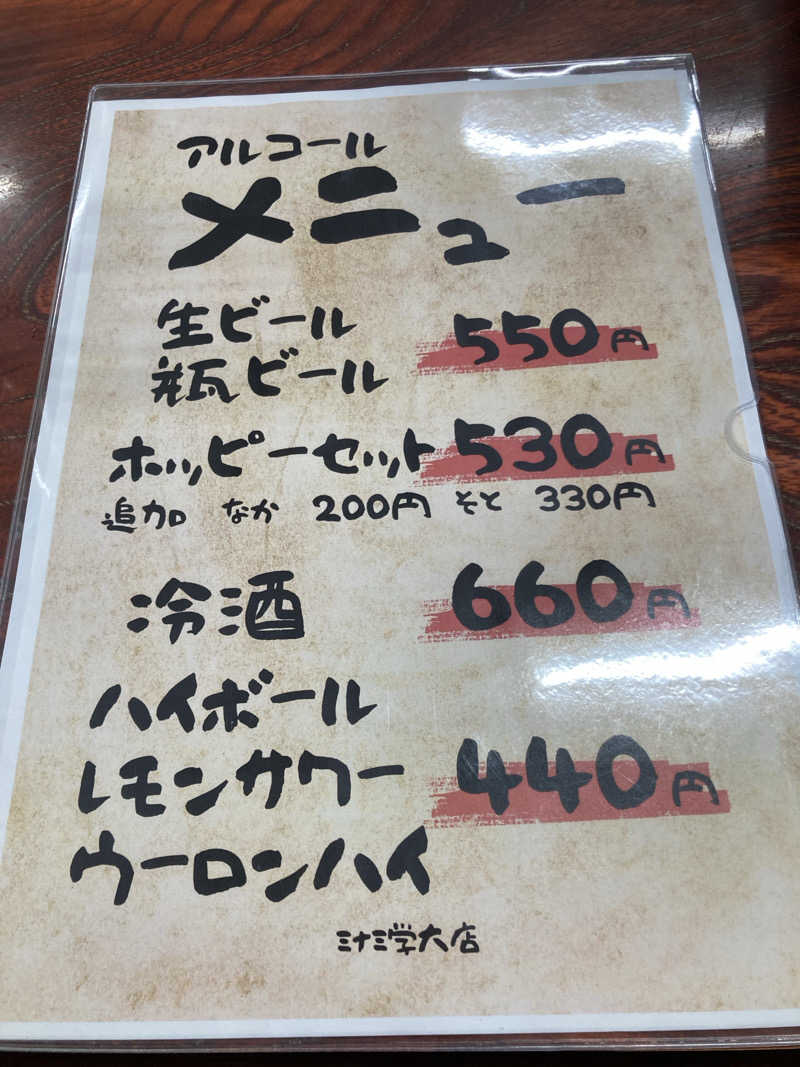 アルコール
メニュー
生ビール
瓶ビール
550円
ホッピーセット 530円
追加 なか 200円 そと 330円
冷酒 660円
ハイボール
レモンサワー 440円
ウーロンハイ
ミナミ学大店